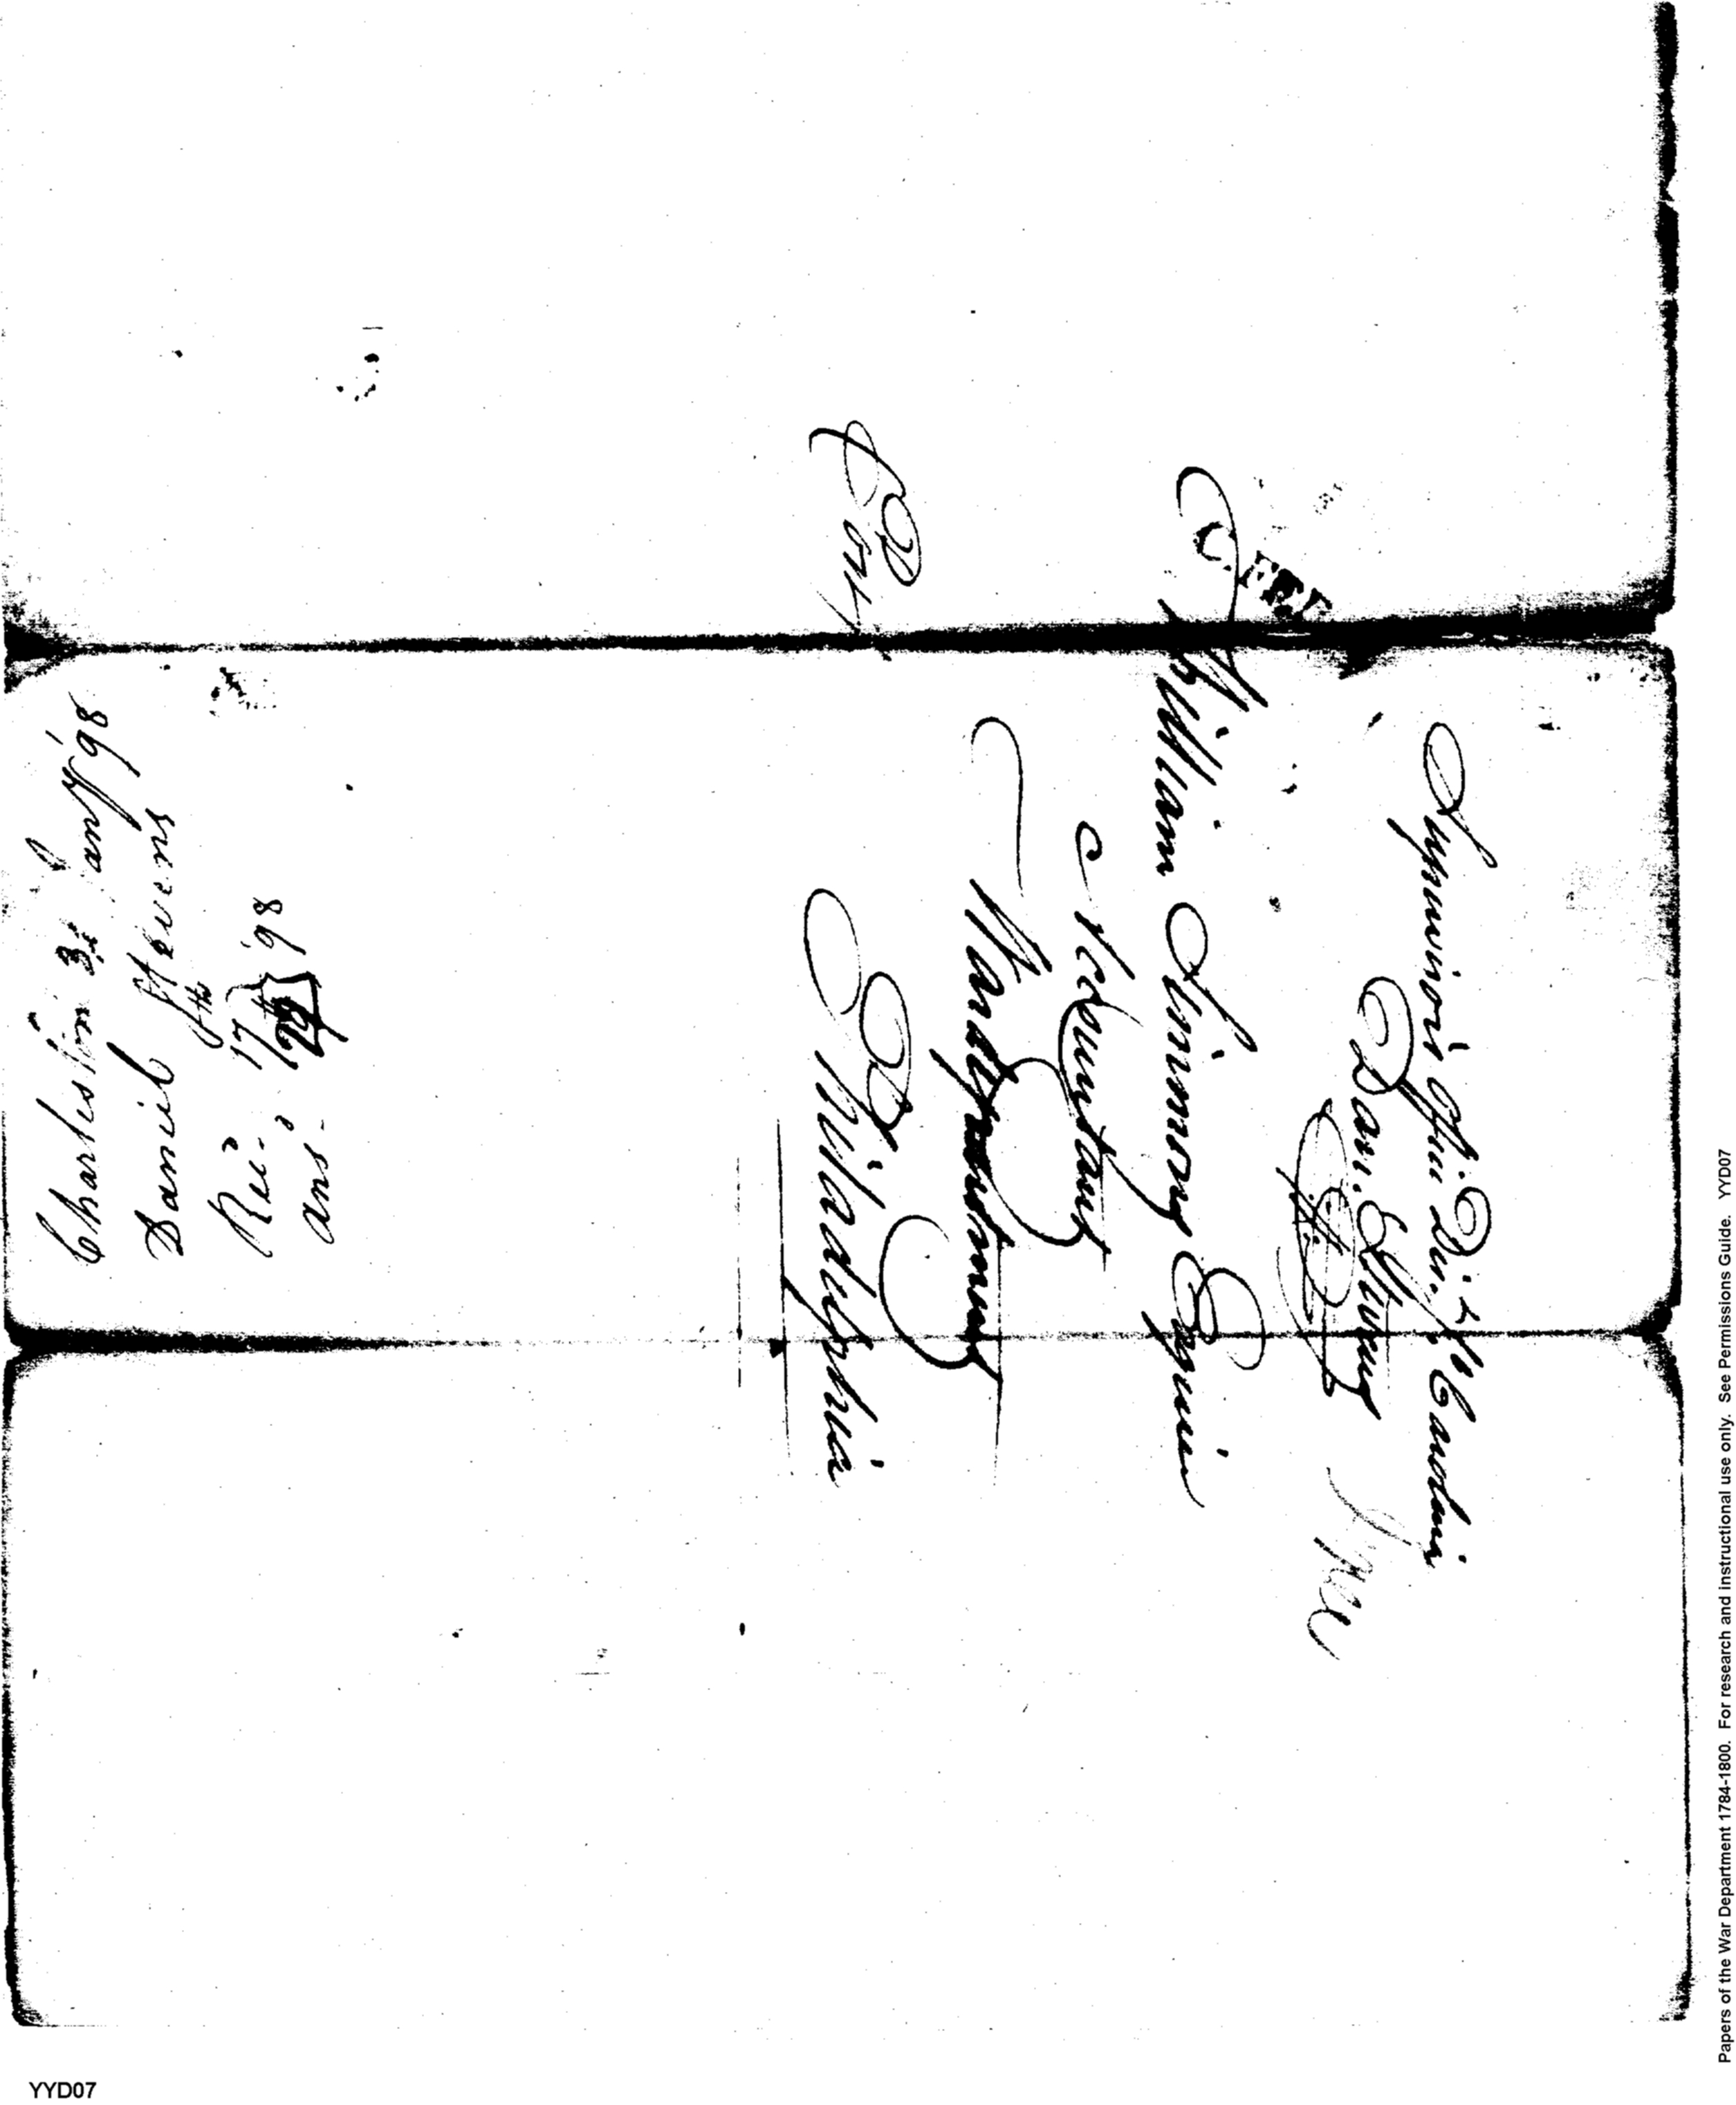 Supervisor's Office Dist. So. Carolina
Dan. Stevens
Free
William Simmons Esquire
Accountant
War Department
Philadelphia
Charleston 3d. Jany '98
Daniel Stevens
Rec'd 17th '98
ans'd
Papers of the War Department 1784-1800. For research and instructional use only. See Permissions Guide. YYD07
YYD07